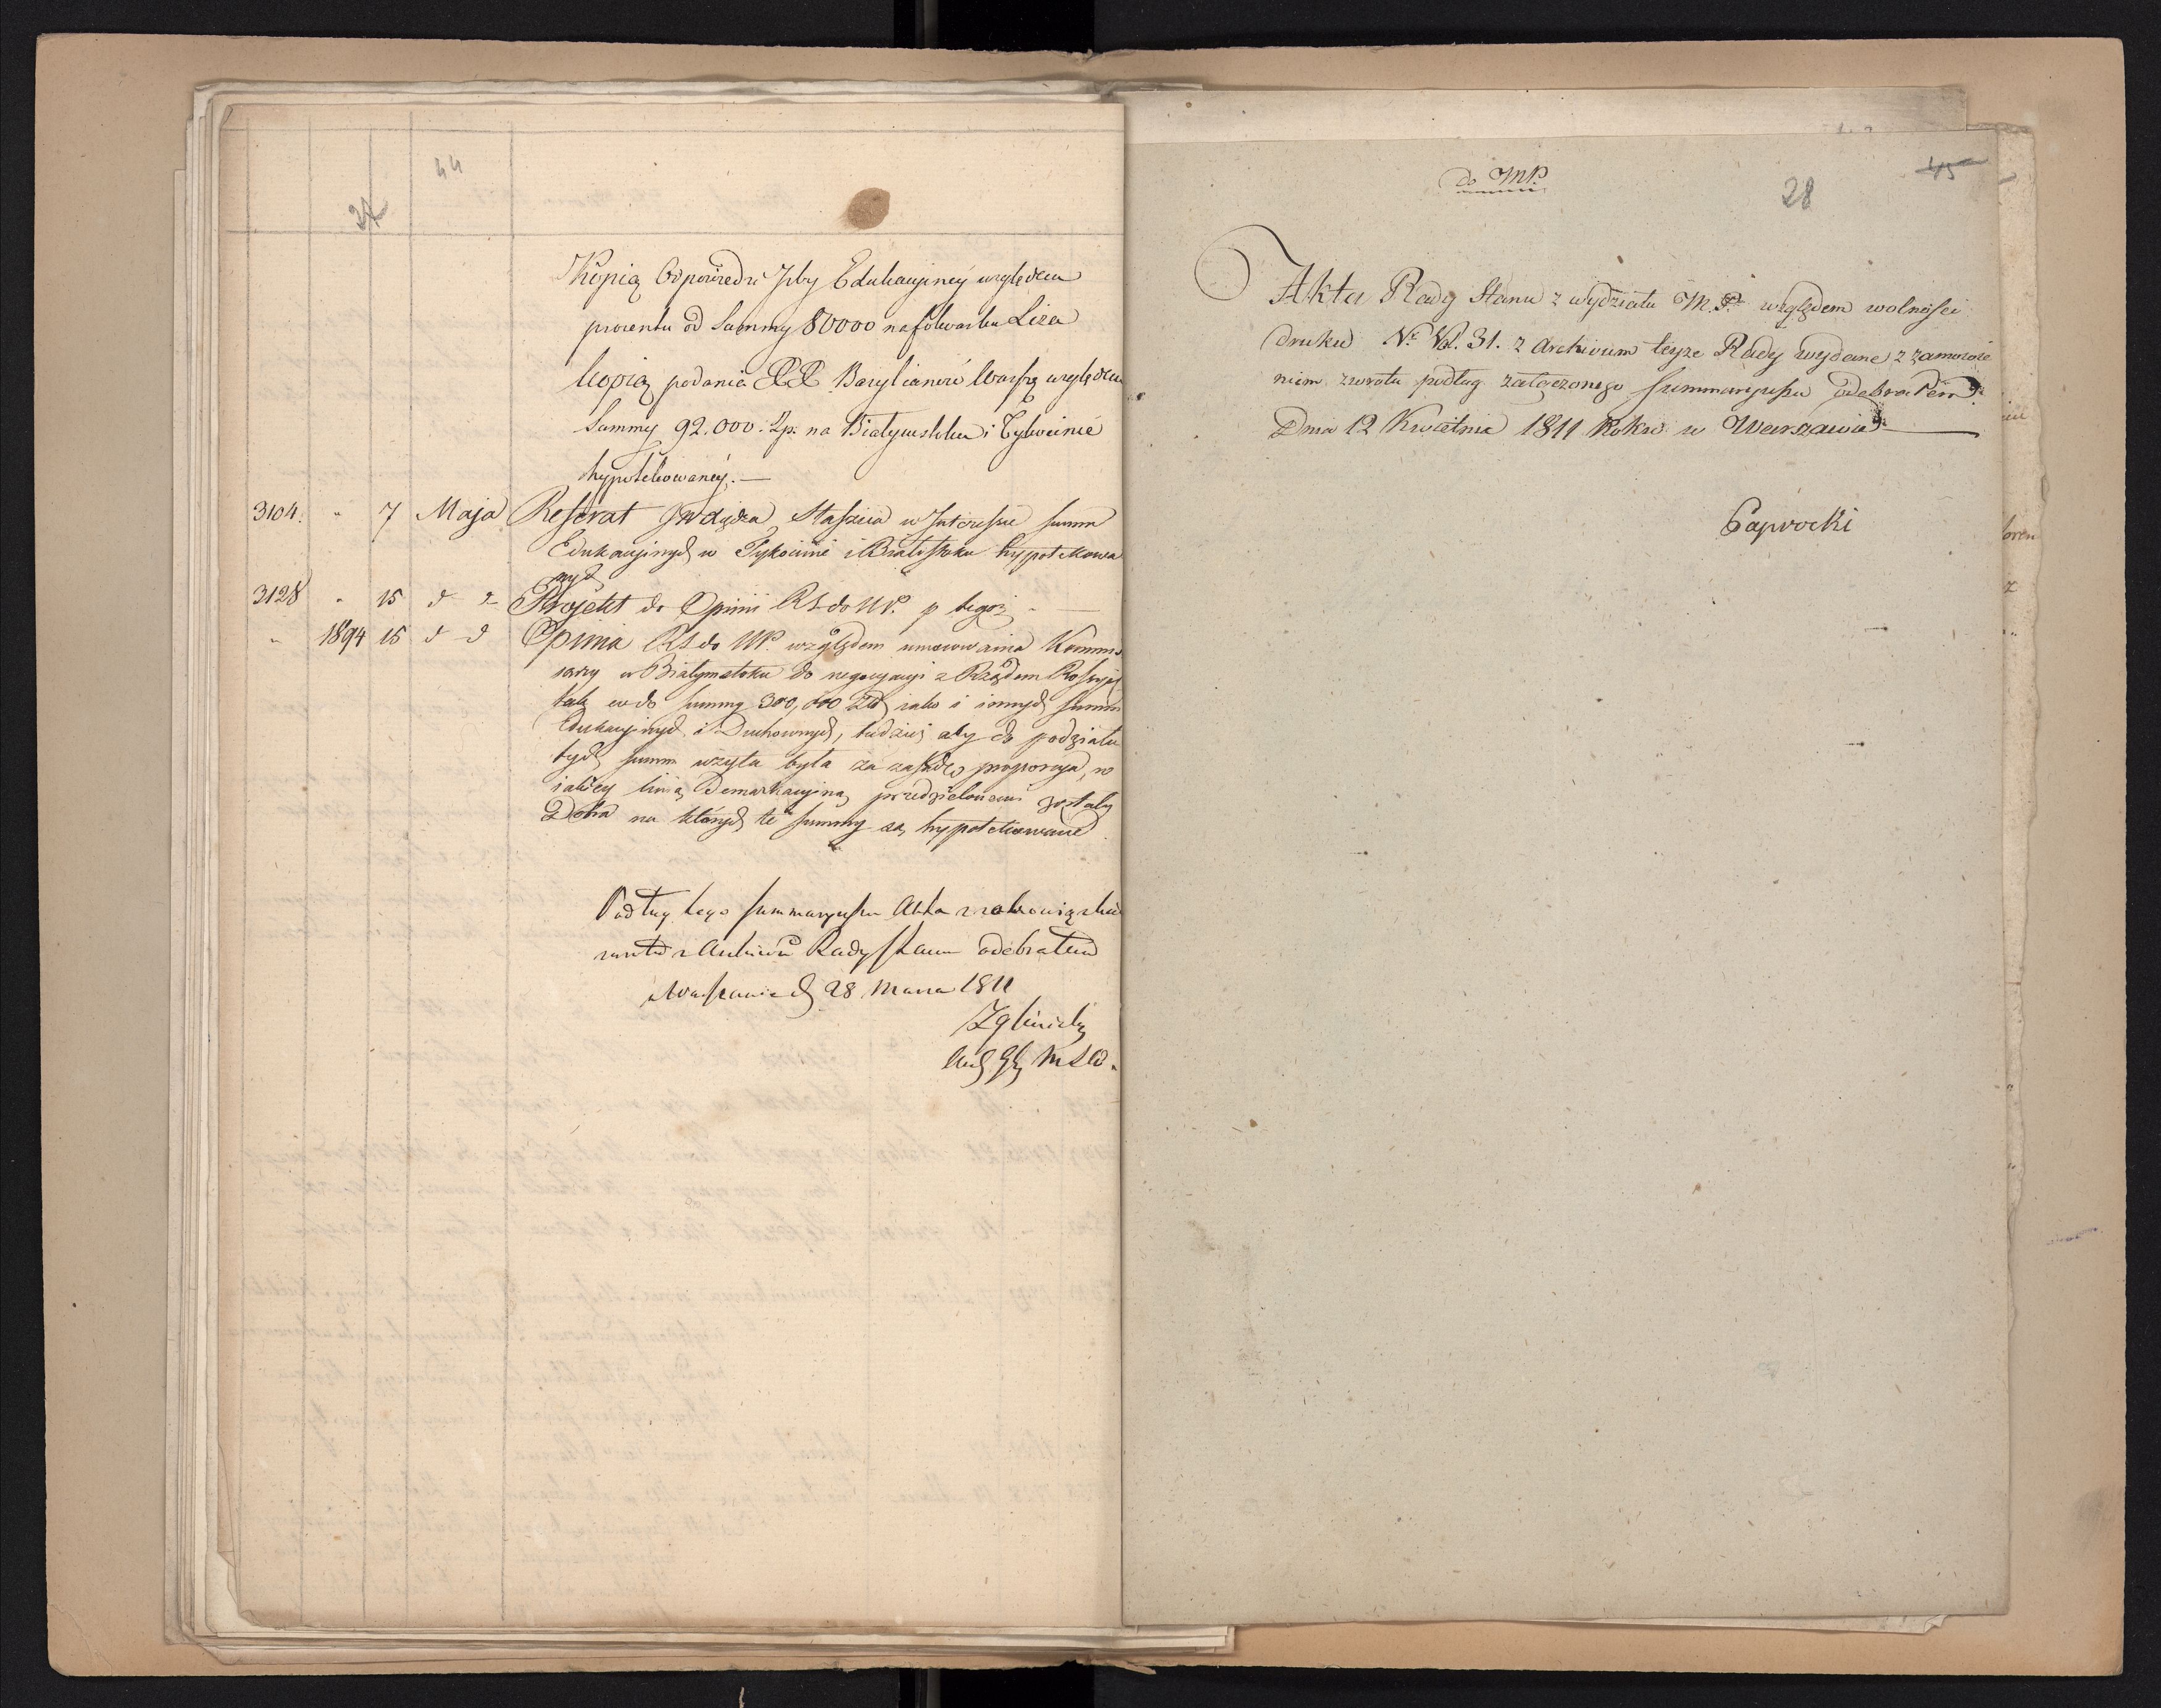 44
27
Kopią Odpowiedzi Izby Edukacyiney względem
procentu od Summy 80000 na folwarku Liza
Kopią podania XX Bazylianów Warszą względem
Summy 92.000. Zp. na Białymstoku i Tykocinie
hypotekowaney. —
3104. " 7 Maja Referat JWdza Staszica w Interesie summ
Edukacyinych w Tykocinie i Białstoku hypotekowa
nych
3128 " 15 d d Projekt do Opinii RS do NP. p tegoż
" 1894 15 d d Opinia RS do NP. względem umocowania Kommis
sarzy w Białymstoku do negocyacyi z Rządem Rossyis
tak co do summy 300,000 Zł jako i innych summ
Edukacyinych i Duchownych, tudzież aby do podziału
tych summ użyta była za zasadę proporcya, w
iakiey linią Demarkacyiną przedzielonemi zostały
Dobra na których te summy są hypotekowane
Podług tego summaryusza Akta z obowiązkiem
zwrotu z Archiwu Rady Stanu odebrałem
w Warszawie d 28 Marca 1811
Zglinicki
do MP.
45
28
Akta Rady Stanu z wydziału M.P. względem wolności
druku Nr. Vol. 31. z Archivum teyże Rady wydane z zamówie
niem zwrotu podług załączonego summaryusza odebrałem
Dnia 12 Kwietnia 1811 Roku w Warszawie —
Paprocki